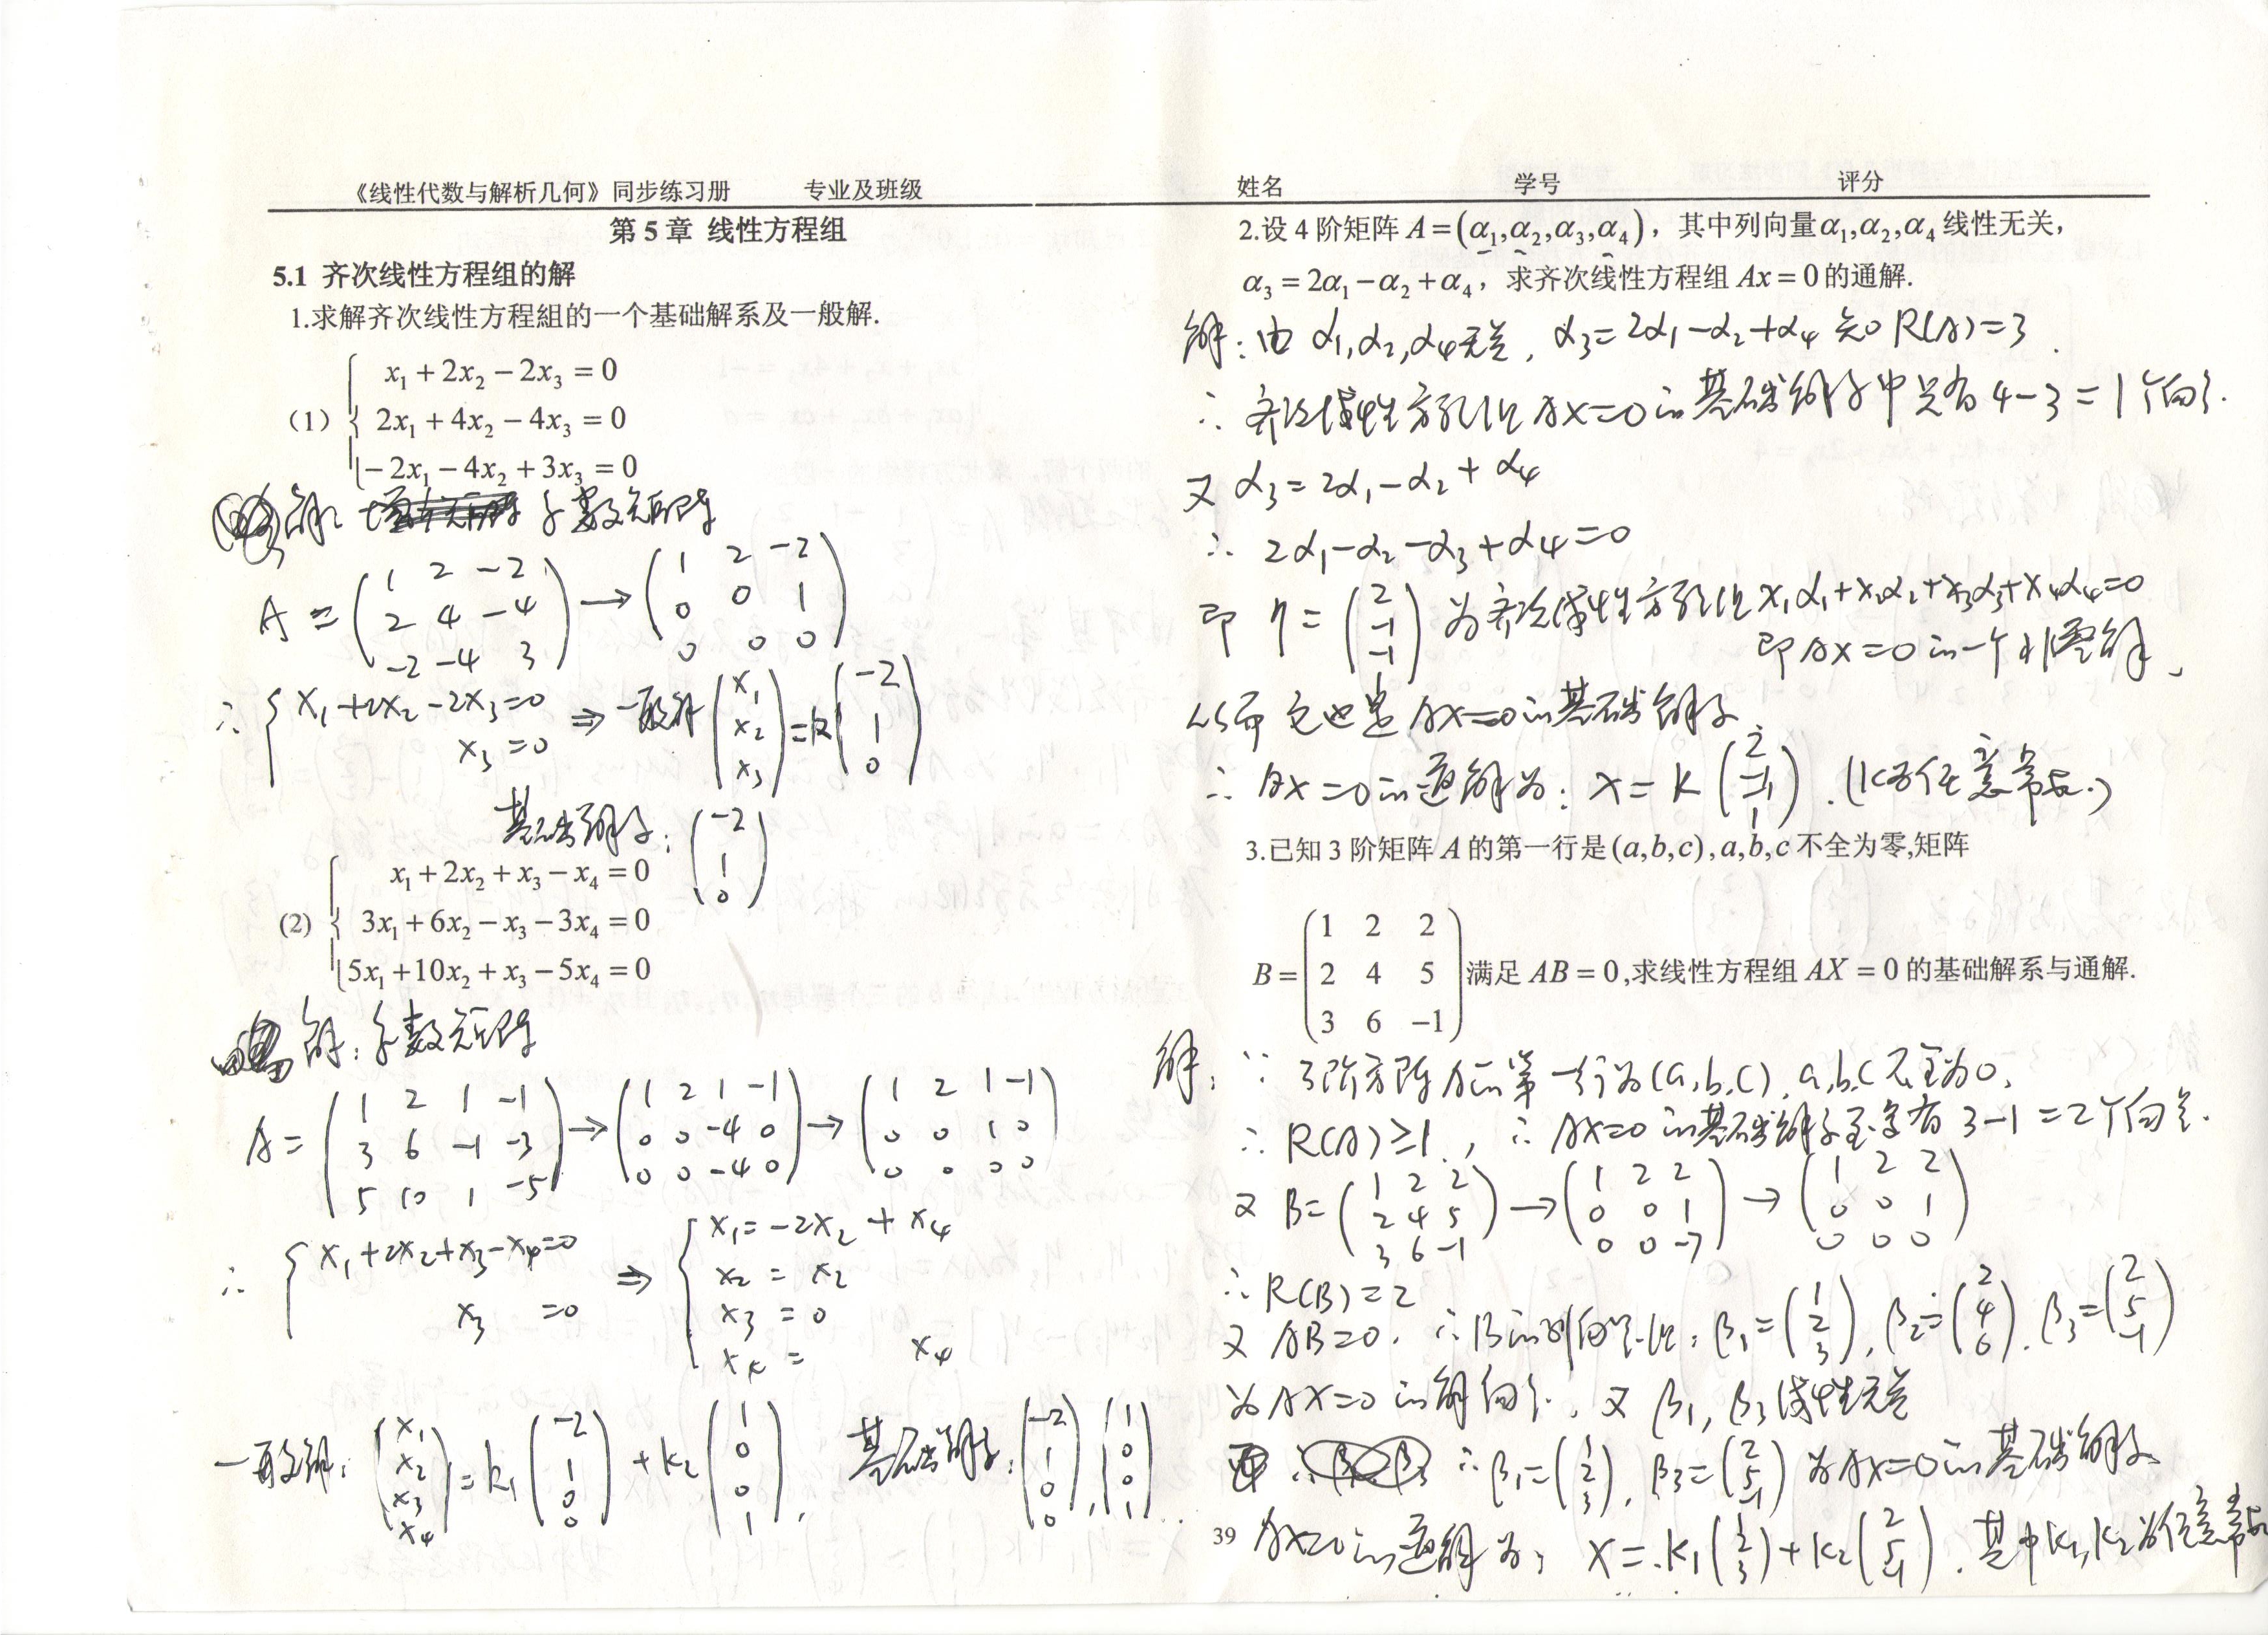 《线性代数与解析几何》同步练习册 专业及班级
第 5 章 线性方程组
5.1 齐次线性方程组的解
1.求解齐次线性方程組的一个基础解系及一般解.
x₁ + 2x₂ − 2x₃ = 0
(1) { 2x₁ + 4x₂ − 4x₃ = 0
−2x₁ − 4x₂ + 3x₃ = 0
解: 系数矩阵
A = (1 2 −2; 2 4 −4; −2 −4 3) → (1 2 −2; 0 0 1; 0 0 0)
∴ { x₁+2x₂−2x₃=0
x₃=0 ⇒ 一般解 (x₁; x₂; x₃) = k(−2; 1; 0)
基础解系: (−2; 1; 0)
x₁ + 2x₂ + x₃ − x₄ = 0
(2) { 3x₁ + 6x₂ − x₃ − 3x₄ = 0
5x₁ + 10x₂ + x₃ − 5x₄ = 0
解: 系数矩阵
A = (1 2 1 −1; 3 6 −1 −3; 5 10 1 −5) → (1 2 1 −1; 0 0 −4 0; 0 0 −4 0) → (1 2 1 −1; 0 0 1 0; 0 0 0 0)
∴ { x₁+2x₂+x₃−x₄=0
x₃ =0 ⇒ { x₁=−2x₂ + x₄
x₂ = x₂
x₃ = 0
x₄ = x₄
一般解: (x₁; x₂; x₃; x₄) = k₁(−2; 1; 0; 0) + k₂(1; 0; 0; 1), 基础解系: (−2; 1; 0; 0), (1; 0; 0; 1).
姓名 学号 评分
2.设 4 阶矩阵 A = (α₁,α₂,α₃,α₄)，其中列向量α₁,α₂,α₄ 线性无关，
α₃ = 2α₁ − α₂ + α₄，求齐次线性方程组 Ax = 0 的通解.
解: 由 α₁,α₂,α₄无关, α₃=2α₁−α₂+α₄ 知 R(A)=3.
∴ 齐次线性方程组 AX=0的基础解系中只有 4−3=1个向量.
又 α₃=2α₁−α₂+α₄
∴ 2α₁−α₂−α₃+α₄=0
即 η = (2; −1; −1) 为齐次线性方程组 x₁α₁+x₂α₂+x₃α₃+x₄α₄=0
即AX=0的一个非零解,
从而它也是 AX=0的基础解系
∴ AX=0的通解为: X=k(2; −1; −1; 1). (k为任意常数.)
3.已知 3 阶矩阵 A 的第一行是(a,b,c),a,b,c 不全为零,矩阵
B = (1 2 2; 2 4 5; 3 6 −1) 满足 AB = 0,求线性方程组 AX = 0 的基础解系与通解.
解: ∵ 3阶方阵A的第一行为(a,b,c), a,b,c不全为0,
∴ R(A)≥1, ∴ AX=0的基础解系至多有 3−1=2个向量.
又 B=(1 2 2; 2 4 5; 3 6 −1) → (1 2 2; 0 0 1; 0 0 −7) → (1 2 2; 0 0 1; 0 0 0)
∴ R(B)=2
又 AB=0. ∴ B的列向量组: β₁=(1; 2; 3), β₂=(2; 4; 6), β₃=(2; 5; −1)
为AX=0的解向量, 又 β₁, β₃线性无关
∴ β₁=(1; 2; 3), β₃=(2; 5; −1) 为AX=0的基础解系
AX=0的通解为: X=k₁(1; 2; 3)+k₂(2; 5; −1). 其中k₁,k₂为任意常数
39